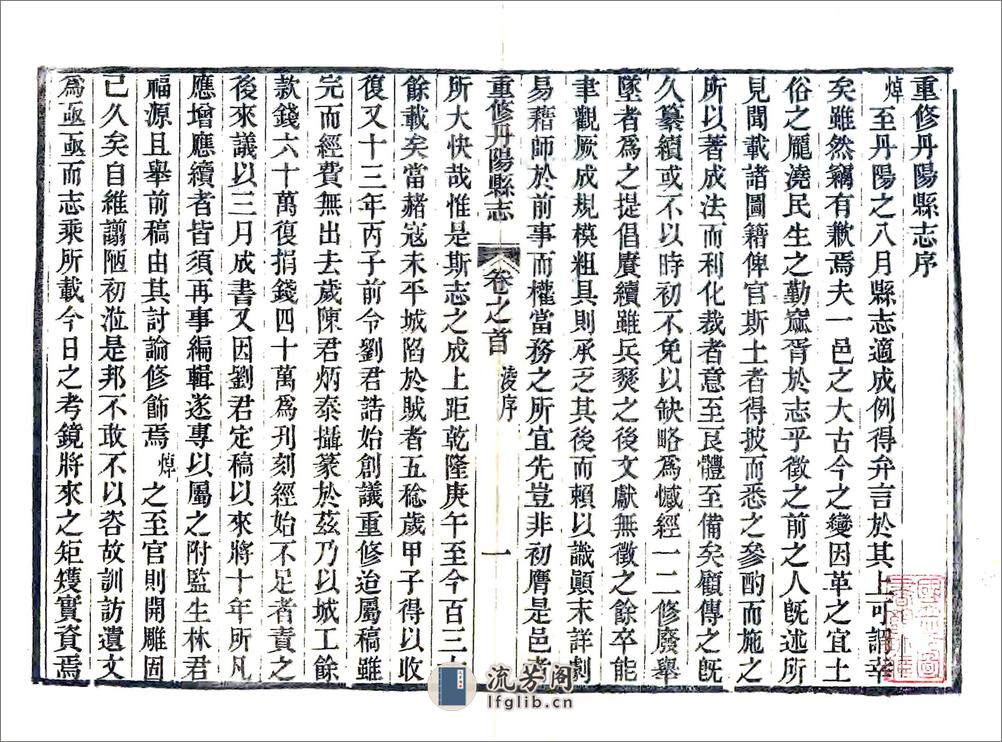 重修丹陽縣志序
焯至丹陽之八月縣志適成例得弁言於其上可謂幸
矣雖然竊有歉焉夫一邑之大古今之變因革之宜土
俗之龐澆民生之勤窳胥於志乎徵之前之人既述所
見聞載諸圖籍俾官斯土者得披而悉之參酌而施之
所以著成法而利化裁者意至良體至備矣顧傳之既
久纂續或不以時初不免以缺略為憾經一二修廢舉
墜者為之提倡賡續雖兵燹之後文獻無徵之餘卒能
聿觀厥成規模粗具則承乏其後而賴以識顛末詳劇
易藉師於前事而權當務之所宜先豈非初膺是邑者
重修丹陽縣志 卷之首 淩序 一
所大快哉惟是斯志之成上距乾隆庚午至今百三十
餘載矣當赭寇未平城陷於賊者五稔歲甲子得以收
復又十三年丙子前令劉君誥始創議重修迨屬稿雖
完而經費無出去歲陳君炳泰攝篆於茲乃以城工餘
款錢六十萬復捐錢四十萬為刊刻經始不足者責之
後來議以三月成書又因劉君定稿以來將十年所凡
應增應續者皆須再事編輯遂專以屬之附監生林君
福源且舉前稿由其討論修飾焉焯之至官則開雕固
已久矣自維譾陋初涖是邦不敢不以咨故訓訪遺文
為亟亟而志乘所載今日之考鏡將來之矩矱實資焉
流芳閣
lfglib.cn